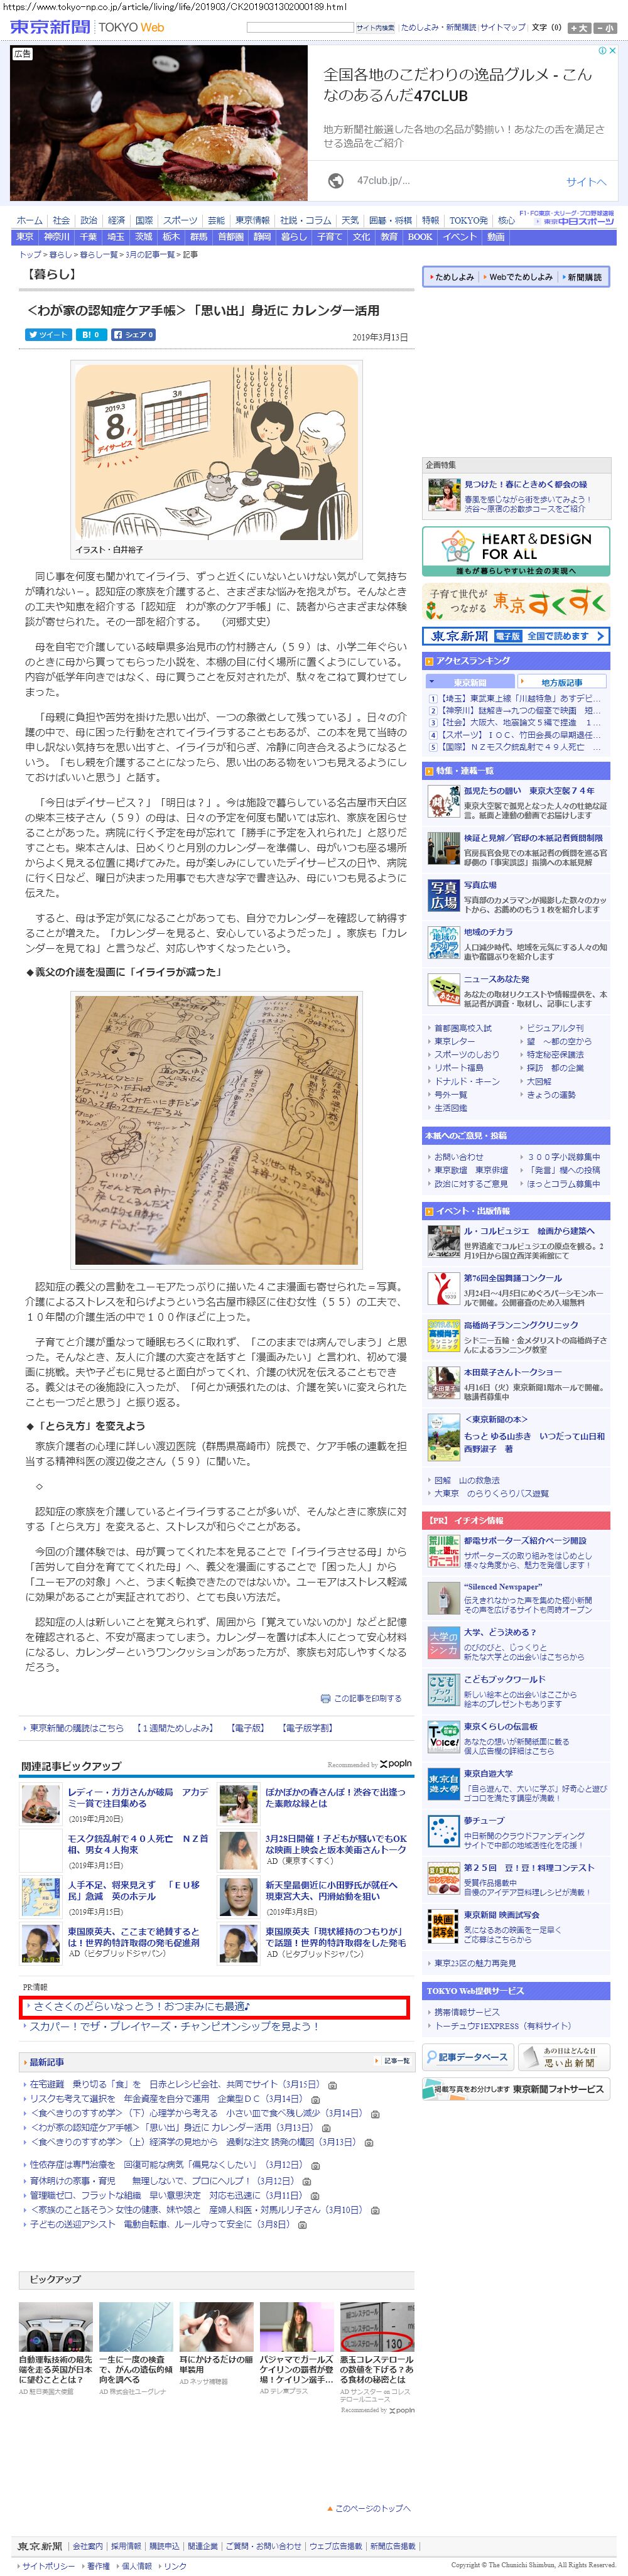 https://www.tokyo-np.co.jp/article/living/life/201903/CK2019031302000189.html
東京新聞 TOKYO Web
サイト内検索 ためしよみ・新聞購読 サイトマップ 文字（0） ＋大 －小
広告
全国各地のこだわりの逸品グルメ - こんなのあるんだ47CLUB
地方新聞社厳選した各地の名品が勢揃い！あなたの舌を満足させる逸品をご紹介
47club.jp/... サイトへ
ホーム 社会 政治 経済 国際 スポーツ 芸能 東京情報 社説・コラム 天気 囲碁・将棋 特報 TOKYO発 核心
F1・FC東京・大リーグ・プロ野球速報
東京中日スポーツ
東京 神奈川 千葉 埼玉 茨城 栃木 群馬 首都圏 静岡 暮らし 子育て 文化 教育 BOOK イベント 動画
トップ > 暮らし > 暮らし一覧 > 3月の記事一覧 > 記事
【暮らし】
＜わが家の認知症ケア手帳＞「思い出」身近に カレンダー活用
ツイート B! 0 シェア 0
2019年3月13日
2019.3
8
デイサービス
3
イラスト・白井裕子
同じ事を何度も聞かれてイライラ、ずっと近くにいないといけない気がして気持ちが晴れない－。認知症の家族を介護すると、さまざまな悩みを抱えがち。そんなときの工夫や知恵を紹介する「認知症　わが家のケア手帳」に、読者からさまざまな体験談が寄せられた。その一部を紹介する。　（河郷丈史）
母を自宅で介護している岐阜県多治見市の竹村勝さん（５９）は、小学二年ぐらいのときに母から買ってもらった小説を、本棚の目に付く場所に置くようにしている。内容が低学年向きではなく、母に買うことを反対されたが、駄々をこねて買わせてしまった。
「母親に負担や苦労を掛けた思い出が、一つの象徴として残っている」。日々の介護の中で、母に困った行動をされてイライラすることもあるが、この本を見て当時の申し訳ない気持ちを思い出すと、イライラが和らぎ、冷静に向き合えるようになるという。「もし親を介護することになったら、思い出になる物を見えるところにしましておけばいいと思う」と話す。
「今日はデイサービス？」「明日は？」。今は施設で暮らしている名古屋市天白区の柴本三枝子さん（５９）の母は、日々の予定を何度も聞いては忘れ、家族を困らせることがあった。病院に行く予定を母が忘れて「勝手に予定を入れられた」と怒りだすこともあった。柴本さんは、日めくりと月別のカレンダーを準備し、母がいつも座る場所からよく見える位置に掲げてみた。母が楽しみにしていたデイサービスの日や、病院に行く日など、曜日が決まった用事でも大きな字で書き込み、母にいつも見るように伝えた。
すると、母は予定が気になることがあっても、自分でカレンダーを確認して納得することが増えた。「カレンダーを見ると、安心しているようだった」。家族も「カレンダーを見てね」と言うなど、対応しやすくなったという。
◆義父の介護を漫画に「イライラが減った」
認知症の義父の言動をユーモアたっぷりに描いた４こま漫画も寄せられた＝写真。介護によるストレスを和らげようという名古屋市緑区に住む女性（５５）の工夫で、１０年間の介護生活の中で１００作ほどに上った。
子育てと介護が重なって睡眠もろくに取れず、「このままでは病んでしまう」と思った。そんなとき、友人に介護の大変さを話すと「漫画みたい」と言われ、初めて漫画に挑戦。夫や子どもに見せると面白がってくれ、介護の状況を伝えることもできる。義父はその後施設に入ったが、「何とか頑張れたのは、介護を笑いに変えられたことも一つだと思う」と振り返る。
◆「とらえ方」を変えよう
家族介護者の心理に詳しい渡辺医院（群馬県高崎市）院長で、ケア手帳の連載を担当する精神科医の渡辺俊之さん（５９）に聞いた。
◇
認知症の家族を介護しているとイライラすることが多いが、そんなときに家族に対する「とらえ方」を変えると、ストレスが和らぐことがある。
今回の介護体験では、母が買ってくれた本を見ることで「イライラさせる母」から「苦労して自分を育ててくれた母」へ、義父を漫画にすることで「困った人」から「ユーモアの対象」へと、うまく転換できたのではないか。ユーモアはストレス軽減に効果があることが実証されており、とても良い方法だ。
認知症の人は新しいことを覚えられず、周囲から「覚えていないのか」などと記憶を確認されると、不安が高まってしまう。カレンダーを置けば本人にとって安心材料になるし、カレンダーというワンクッションがあった方が、家族も対応しやすくなるだろう。
この記事を印刷する
東京新聞の購読はこちら 【１週間ためしよみ】 【電子版】 【電子版学割】
関連記事ピックアップ
Recommended by popIn
レディー・ガガさんが破局　アカデミー賞で注目集める
(2019年2月20日)
ぽかぽかの春さんぽ！渋谷で出逢った素敵な緑とは
モスク銃乱射で４０人死亡　ＮＺ首相、男女４人拘束
(2019年3月15日)
3月28日開催！子どもが騒いでもOKな映画上映会と坂本美雨さんトーク
AD（東京すくすく）
人手不足、将来見えず　「ＥＵ移民」急減　英のホテル
(2019年3月15日)
新天皇皇側近に小田野氏が就任へ　現東宮大夫、円滑始動を狙い
(2019年3月8日)
東国原英夫、ここまで絶賛するとは！世界的特許取得の発毛促進剤
AD（ビタブリッドジャパン）
東国原英夫「現状維持のつもりが」で話題！世界的特許取得をした発毛
AD（ビタブリッドジャパン）
PR情報
さくさくのどらいなっとう！おつまみにも最適♪
スカパー！でザ・プレイヤーズ・チャンピオンシップを見よう！
最新記事
記事一覧
在宅避難　乗り切る「食」を　日赤とレシピ会社、共同でサイト（3月15日）
リスクも考えて選択を　年金資産を自分で運用　企業型ＤＣ（3月14日）
＜食べきりのすすめ学＞（下）心理学から考える　小さい皿で食べ残し減少（3月14日）
＜わが家の認知症ケア手帳＞「思い出」身近に カレンダー活用（3月13日）
＜食べきりのすすめ学＞（上）経済学の見地から　過剰な注文 誘発の構図（3月13日）
性依存症は専門治療を　回復可能な病気「偏見なくしたい」（3月12日）
育休明けの家事・育児　　無理しないで、プロにヘルプ！（3月12日）
管理職ゼロ、フラットな組織　早い意思決定　対応も迅速に（3月11日）
＜家族のこと話そう＞女性の健康、妹や娘と　産婦人科医・対馬ルリ子さん（3月10日）
子どもの送迎アシスト　電動自転車、ルール守って安全に（3月8日）
ピックアップ
自動運転技術の最先端を走る英国が日本に望むこととは？
AD 駐日英国大使館
一生に一度の検査で、がんの遺伝的傾向を調べる
AD 株式会社ユーグレナ
耳にかけるだけの簡単装用
AD ネッサ補聴器
パジャマでガールズケイリンの覇者が登場！ケイリン選手...
AD テレ東プラス
130
悪玉コレステロールの数値を下げる？ある食材の秘密とは
AD サンスター on コレステロールニュース
Recommended by popIn
このページのトップへ
ためしよみ Webでためしよみ 新聞購読
企画特集
見つけた！春にときめく都会の緑
春風を感じながら街を歩いてみよう！渋谷～原宿のお散歩コースをご紹介
HEART & DESIGN FOR ALL
誰もが暮らしやすい社会の実現へ
子育て世代がつながる 東京すくすく
東京新聞 電子版 全国で読めます
アクセスランキング
東京新聞 地方版記事
1 【埼玉】東武東上線「川越特急」あすデビ...
2 【神奈川】謎解き→九つの個室で映画　短...
3 【社会】大阪大、地震論文５編で捏造　１...
4 【スポーツ】ＩＯＣ、竹田会長の早期退任...
5 【国際】ＮＺモスク銃乱射で４９人死亡　...
特集・連載一覧
孤児たちの闘い　東京大空襲７４年
東京大空襲で孤児となった人々の壮絶な証言。紙面と連動の動画でお届けします
検証と見解／官邸の本紙記者質問制限
官房長官会見での本紙記者の質問を巡る官邸側の「事実誤認」指摘への本紙見解
写真広場
写真部のカメラマンが撮影した数々のカットから、お薦めのもう１枚を紹介します
地域のチカラ
人口減少時代、地域を元気にする人々の知恵や奮闘ぶりを紹介します
ニュースあなた発
あなたの取材リクエストや情報提供を、本紙記者が調査・取材し、記事にします
首都圏高校入試 ビジュアル夕刊
東京レター 望　～都の空から
スポーツのしおり 特定秘密保護法
リポート福島 探訪　都の企業
ドナルド・キーン 大図解
号外一覧 きょうの運勢
生活図鑑
本紙へのご意見・投稿
お問い合わせ ３００字小説募集中
東京歌壇　東京俳壇 「発言」欄への投稿
政治に対するご意見 ほっとコラム募集中
イベント・出版情報
ル・コルビュジエ　絵画から建築へ
世界遺産でコルビュジエの原点を観る。2月19日から国立西洋美術館にて
第76回全国舞踊コンクール
3月24日～4月5日にめぐろパーシモンホールで開催。公開審査のため入場無料
高橋尚子ランニングクリニック
シドニー五輪・金メダリストの高橋尚子さんによるランニング教室
本田葉子さんトークショー
4月16日（火）東京新聞1階ホールで開催。聴講者募集中
＜東京新聞の本＞
もっと ゆる山歩き　いつだって山日和
西野淑子　著
図解　山の救急法
大東京　のらりくらりバス遊覧
【PR】 イチオシ情報
都電サポーターズ紹介ページ開設
サポーターズの取り組みをはじめとし様々な角度から、魅力を発信します！
“Silenced Newspaper”
伝えきれなかった声を集めた極小新聞その声を広げるサイトも同時オープン
大学、どう決める？
のびのびと、じっくりと
新たな大学との出会いはこちらから
こどもブックワールド
新しい絵本との出会いはここから
絵本のプレゼントもあります
東京くらしの伝言板
あなたの想いが新聞紙面に載る
個人広告欄の詳細はこちら
東京自遊大学
「自ら遊んで、大いに学ぶ」好奇心と遊びゴコロを満たす講座が満載！
夢チューブ
中日新聞のクラウドファンディングサイトで中部の地域活性化を応援！
第２５回　豆！豆！料理コンテスト
受賞作品掲載中
自慢のアイデア豆料理レシピが満載！
東京新聞 映画試写会
気になるあの映画を一足早く
ご応募はこちらから
東京23区の魅力再発見
TOKYO Web提供サービス
携帯情報サービス
トーチュウF1EXPRESS（有料サイト）
記事データベース あの日はどんな日 思い出新聞
掲載写真をお分けします 東京新聞フォトサービス
東京新聞 会社案内 採用情報 購読申込 関連企業 ご質問・お問い合わせ ウェブ広告掲載 新聞広告掲載
サイトポリシー 著作権 個人情報 リンク
Copyright © The Chunichi Shimbun, All Rights Reserved.